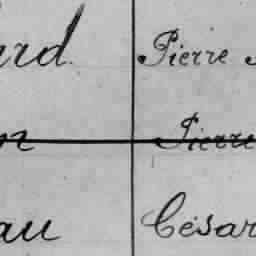 ard Pierre
n Pierre
au César